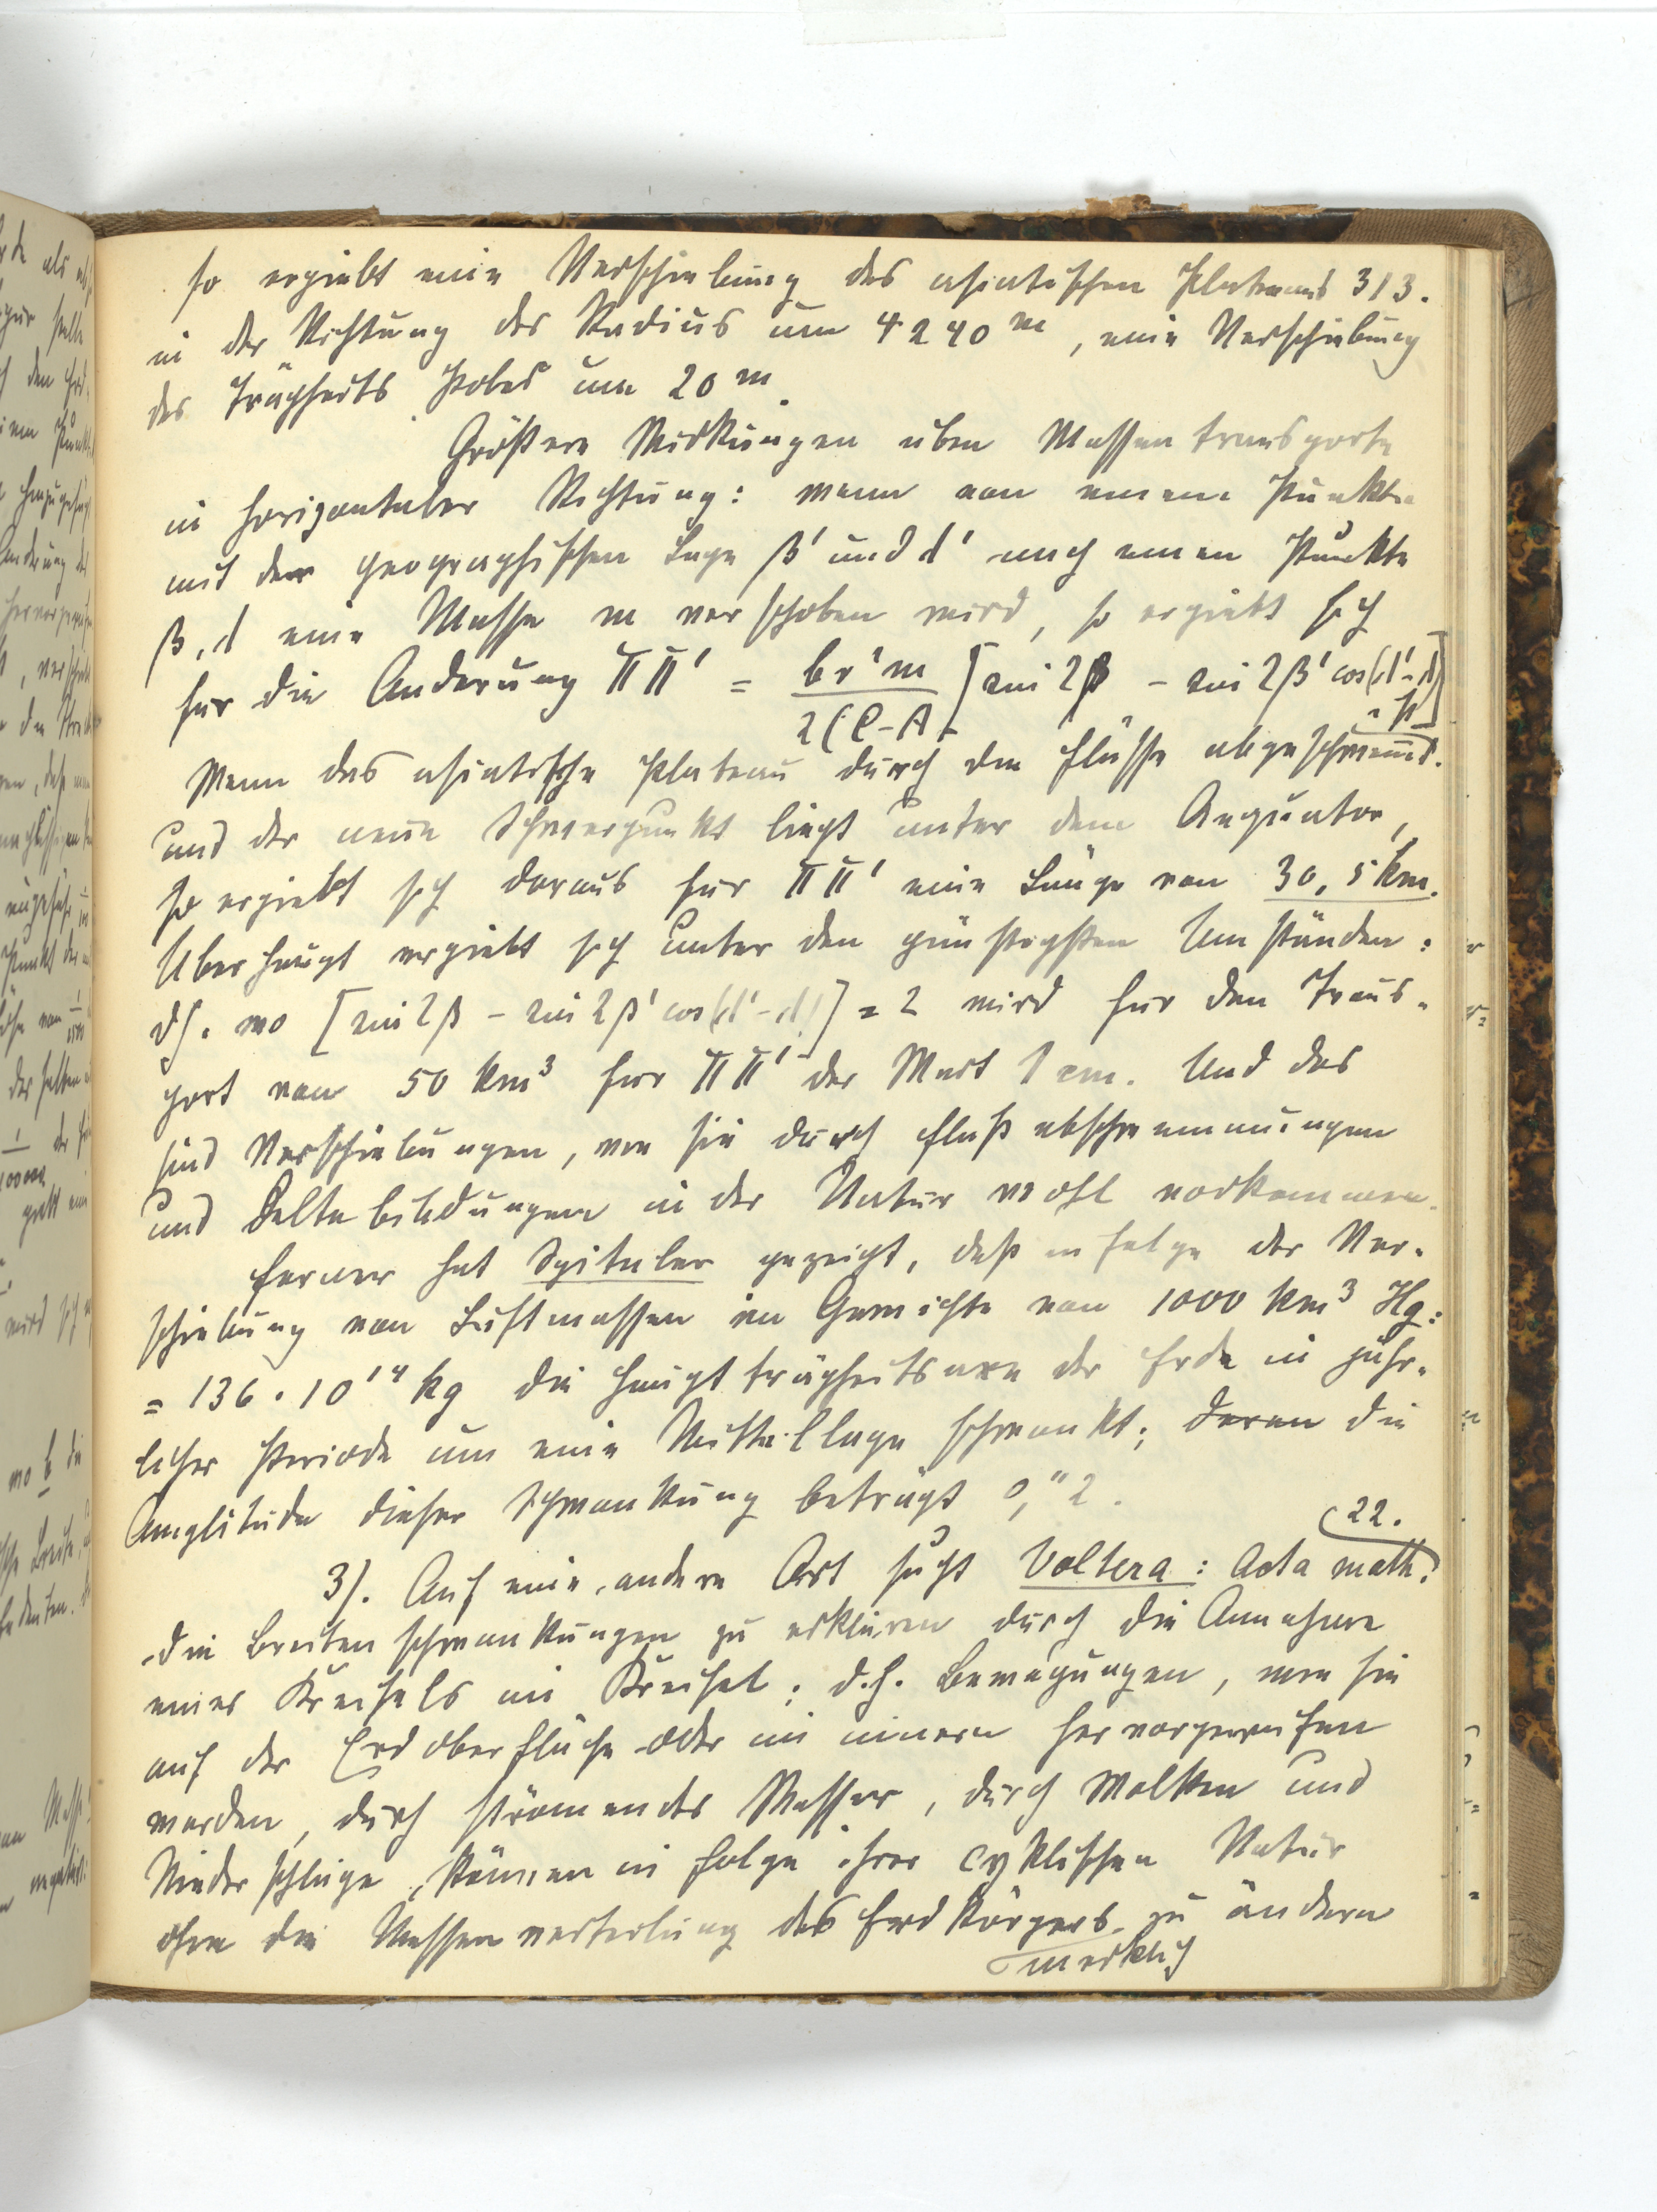 so ergiebt eine Verschiebung des asiatischen Plateaus 313.
in der Richtung des Radius um 4240 m, eine Verschiebung
des Trägheits Poles um 20 m.
Größere Wirkungen üben Massentransporte
in horizontaler Richtung: wenn von einem Punkte
mit der geographischen Lage β' und d' nach einem Punkte
β, d eine Masse m verschoben wird, so ergiebt sich
für die Änderung ΠΠ' = br'm / 2(C-A) [sin 2β - sin 2β' cos(d'-d)]
Wenn das asiatische Plateau durch die Flüsse abgeschwemmt
und der neue Schwerpunkt liegt unter dem Aequator,
so ergiebt sich daraus für ΠΠ' eine Länge von 30,5 km.
Überhaupt ergiebt sich unter den günstigsten Umständen:
dh. wo [sin 2β - sin 2β' cos(d'-d)] = 2 wird für den Trans-
port von 50 km³ für ΠΠ' der Wert 1 cm. Und das
sind Verschiebungen, wie sie durch Flußabschwemmungen
und Deltabildungen in der Natur wohl vorkommen.
Ferner hat Spitaler gezeigt, daß infolge der Ver-
schiebung von Luftmassen im Gewichte von 1000 km³ Hg:
= 136 · 10¹⁴ kg die Hauptträgheitsaxe der Erde in jähr-
licher Periode um eine Mittellage schwankt; deren die
Amplitude dieser Schwankung beträgt 0,"2.
3). Auf eine andere Art sucht Voltera: Acta math. 22.
die Breitenschwankungen zu erklären durch die Annahme
eines Kreisels im Kreisel; d.h. Bewegungen, wie sie
auf der Erdoberfläche oder im innern hervorgerufen
werden, durch strömendes Wasser, durch Wolken und
Niederschläge, können in folge ihrer cyklischen Natur
ohne die Massenverteilung des Erdkörpers zu ändern
merklich